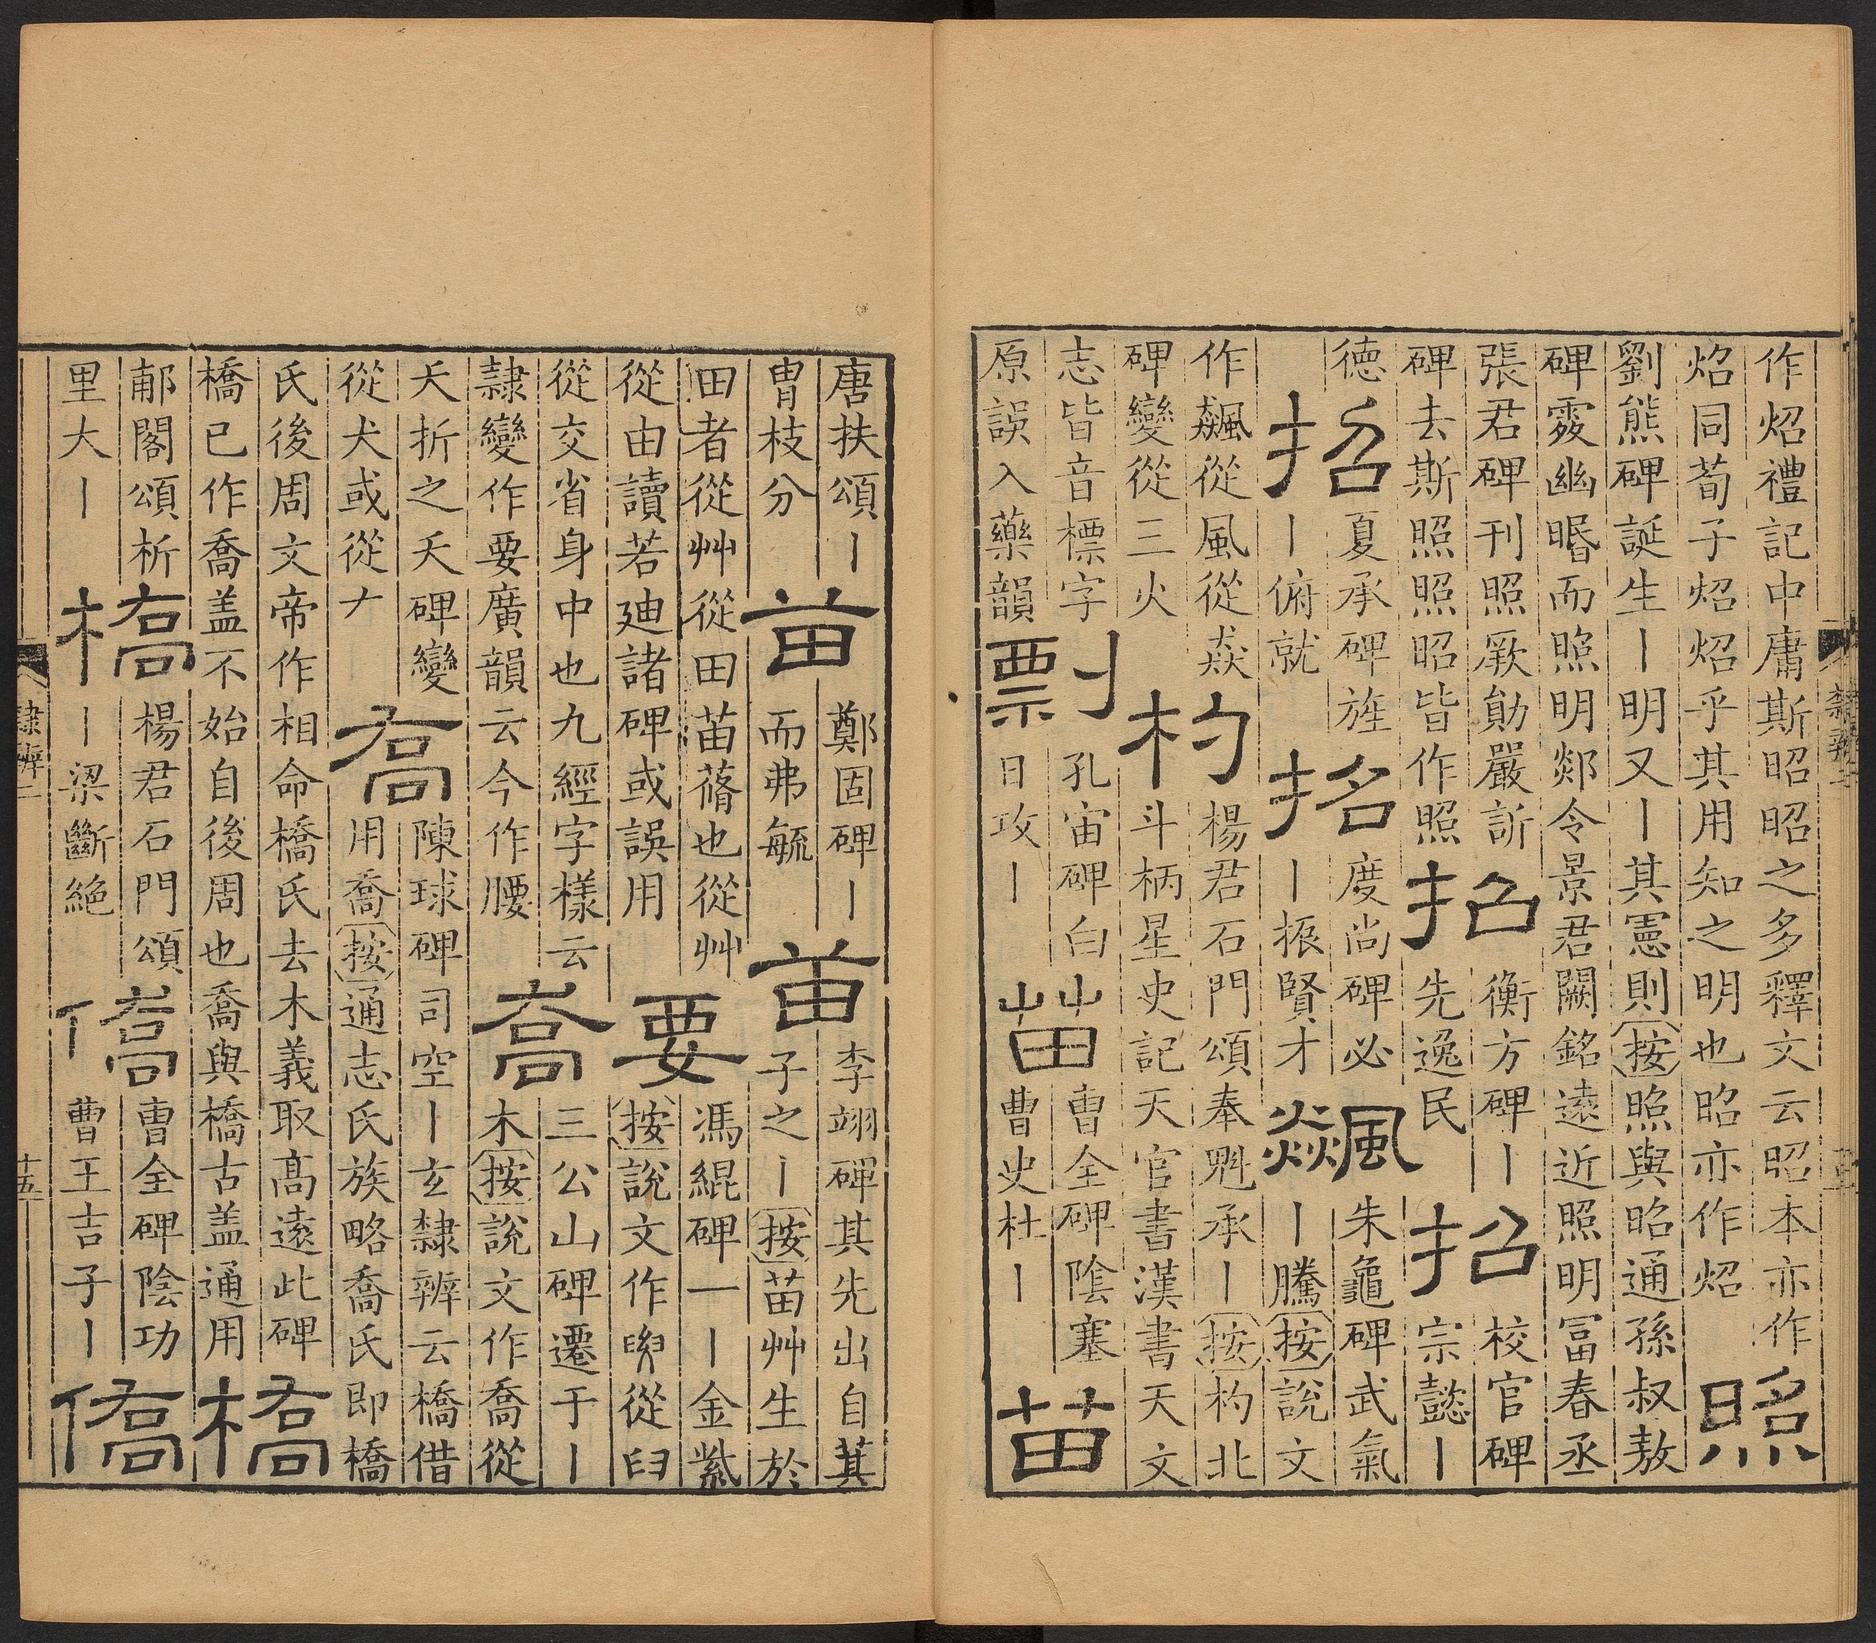 作炤禮記中庸斯昭昭之多釋文云昭本亦作
炤同荀子炤炤乎其用知之明也昭亦作炤
照
劉熊碑誕生丨明又丨其憲則按照與昭通孫叔敖
碑幽而照明郯令景君闕銘遠近照明冨春丞
張君碑刊照厥勛嚴訢
碑去斯照照昭皆作照
招
衡方碑丨
先逸民
招
校官碑
宗懿丨
德
招
夏承碑旌
丨俯就
招
度尚碑必
丨振賢才
飆
朱龜碑武氣
丨騰按說文
作飆從風從猋
碑變從三火
杓
楊君石門頌奉魁承丨按杓北
斗柄星史記天官書漢書天文
志皆音標字
原誤入藥韻
剽
孔宙碑白
日攻丨
苗
曹全碑陰塞
曹史杜丨
苗
唐扶頌丨
胄枝分
苗
鄭固碑丨
而弗毓
苗
李翊碑其先出自萁
子之丨按苗艸生於
田者從艸從田苗蓨也從艸
從由讀若廸諸碑或誤用
要
馮緄碑一丨金紫
按說文作𦥼從臼
從交省身中也九經字樣云
隸變作要廣韻云今作腰
喬
三公山碑遷于丨
木按說文作喬從
夭折之夭碑變
從犬或從𠂇
喬
陳球碑司空丨玄隸辨云橋借
用喬按通志氏族略喬氏即橋
氏後周文帝作相命橋氏去木義取髙遠此碑
橋已作喬盖不始自後周也喬與橋古盖通用
橋
郙閣頌析
里大丨
橋
楊君石門頌
丨梁斷絶
僑
曹全碑陰功
曹王吉子丨
僑
隸辨二
十五